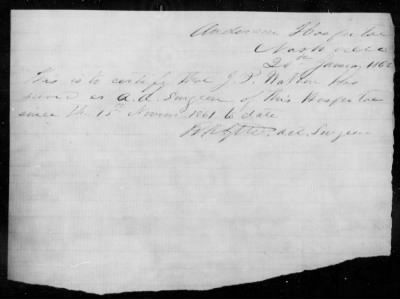 Anderson Hospital
Nashville
20th January 1862
This is to certify that J. P. Walton has
served as a.d. Surgeon of this Hospital
since the 15th Novem 1861 to date
act. Surgeon